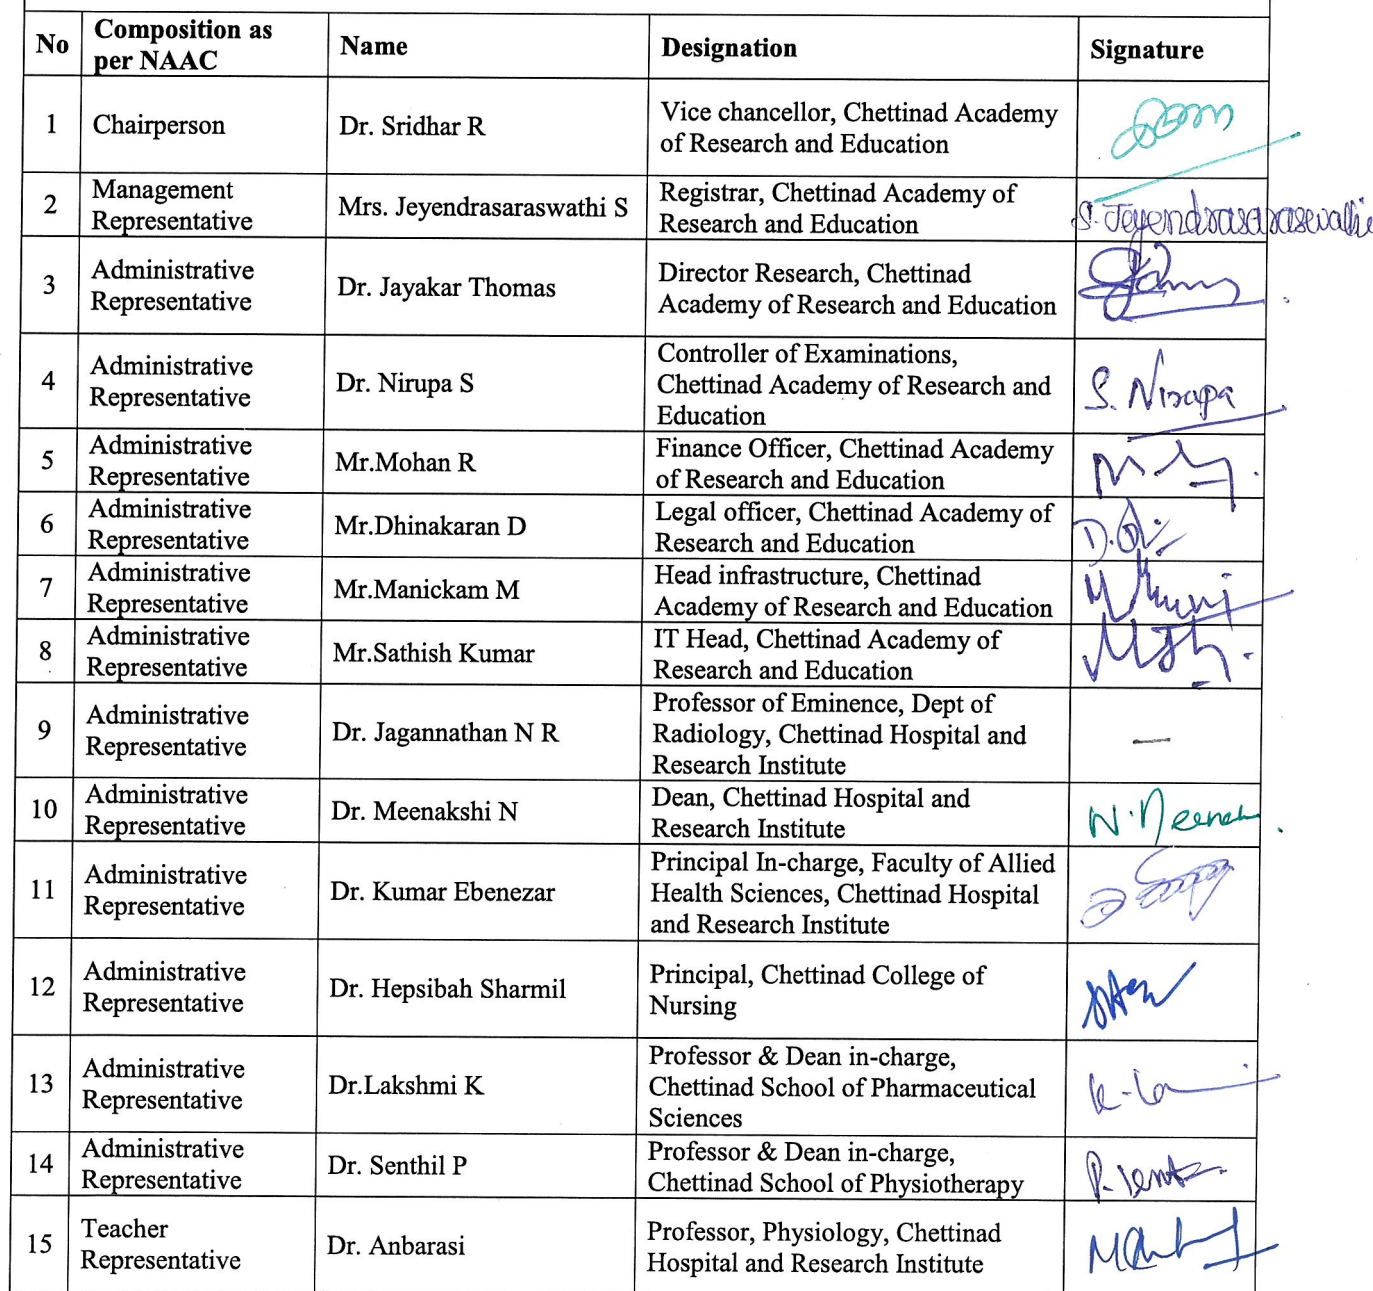 No
Composition as
per NAAC
Name
Designation
Signature
1
Chairperson
Dr. Sridhar R
Vice chancellor, Chettinad Academy
of Research and Education
2
Management
Representative
Mrs. Jeyendrasaraswathi S
Registrar, Chettinad Academy of
Research and Education
S. Jeyendrasaraswathi
3
Administrative
Representative
Dr. Jayakar Thomas
Director Research, Chettinad
Academy of Research and Education
4
Administrative
Representative
Dr. Nirupa S
Controller of Examinations,
Chettinad Academy of Research and
Education
S. Nirupa
5
Administrative
Representative
Mr.Mohan R
Finance Officer, Chettinad Academy
of Research and Education
6
Administrative
Representative
Mr.Dhinakaran D
Legal officer, Chettinad Academy of
Research and Education
7
Administrative
Representative
Mr.Manickam M
Head infrastructure, Chettinad
Academy of Research and Education
8
Administrative
Representative
Mr.Sathish Kumar
IT Head, Chettinad Academy of
Research and Education
9
Administrative
Representative
Dr. Jagannathan N R
Professor of Eminence, Dept of
Radiology, Chettinad Hospital and
Research Institute
—
10
Administrative
Representative
Dr. Meenakshi N
Dean, Chettinad Hospital and
Research Institute
11
Administrative
Representative
Dr. Kumar Ebenezar
Principal In-charge, Faculty of Allied
Health Sciences, Chettinad Hospital
and Research Institute
12
Administrative
Representative
Dr. Hepsibah Sharmil
Principal, Chettinad College of
Nursing
13
Administrative
Representative
Dr.Lakshmi K
Professor & Dean in-charge,
Chettinad School of Pharmaceutical
Sciences
14
Administrative
Representative
Dr. Senthil P
Professor & Dean in-charge,
Chettinad School of Physiotherapy
15
Teacher
Representative
Dr. Anbarasi
Professor, Physiology, Chettinad
Hospital and Research Institute